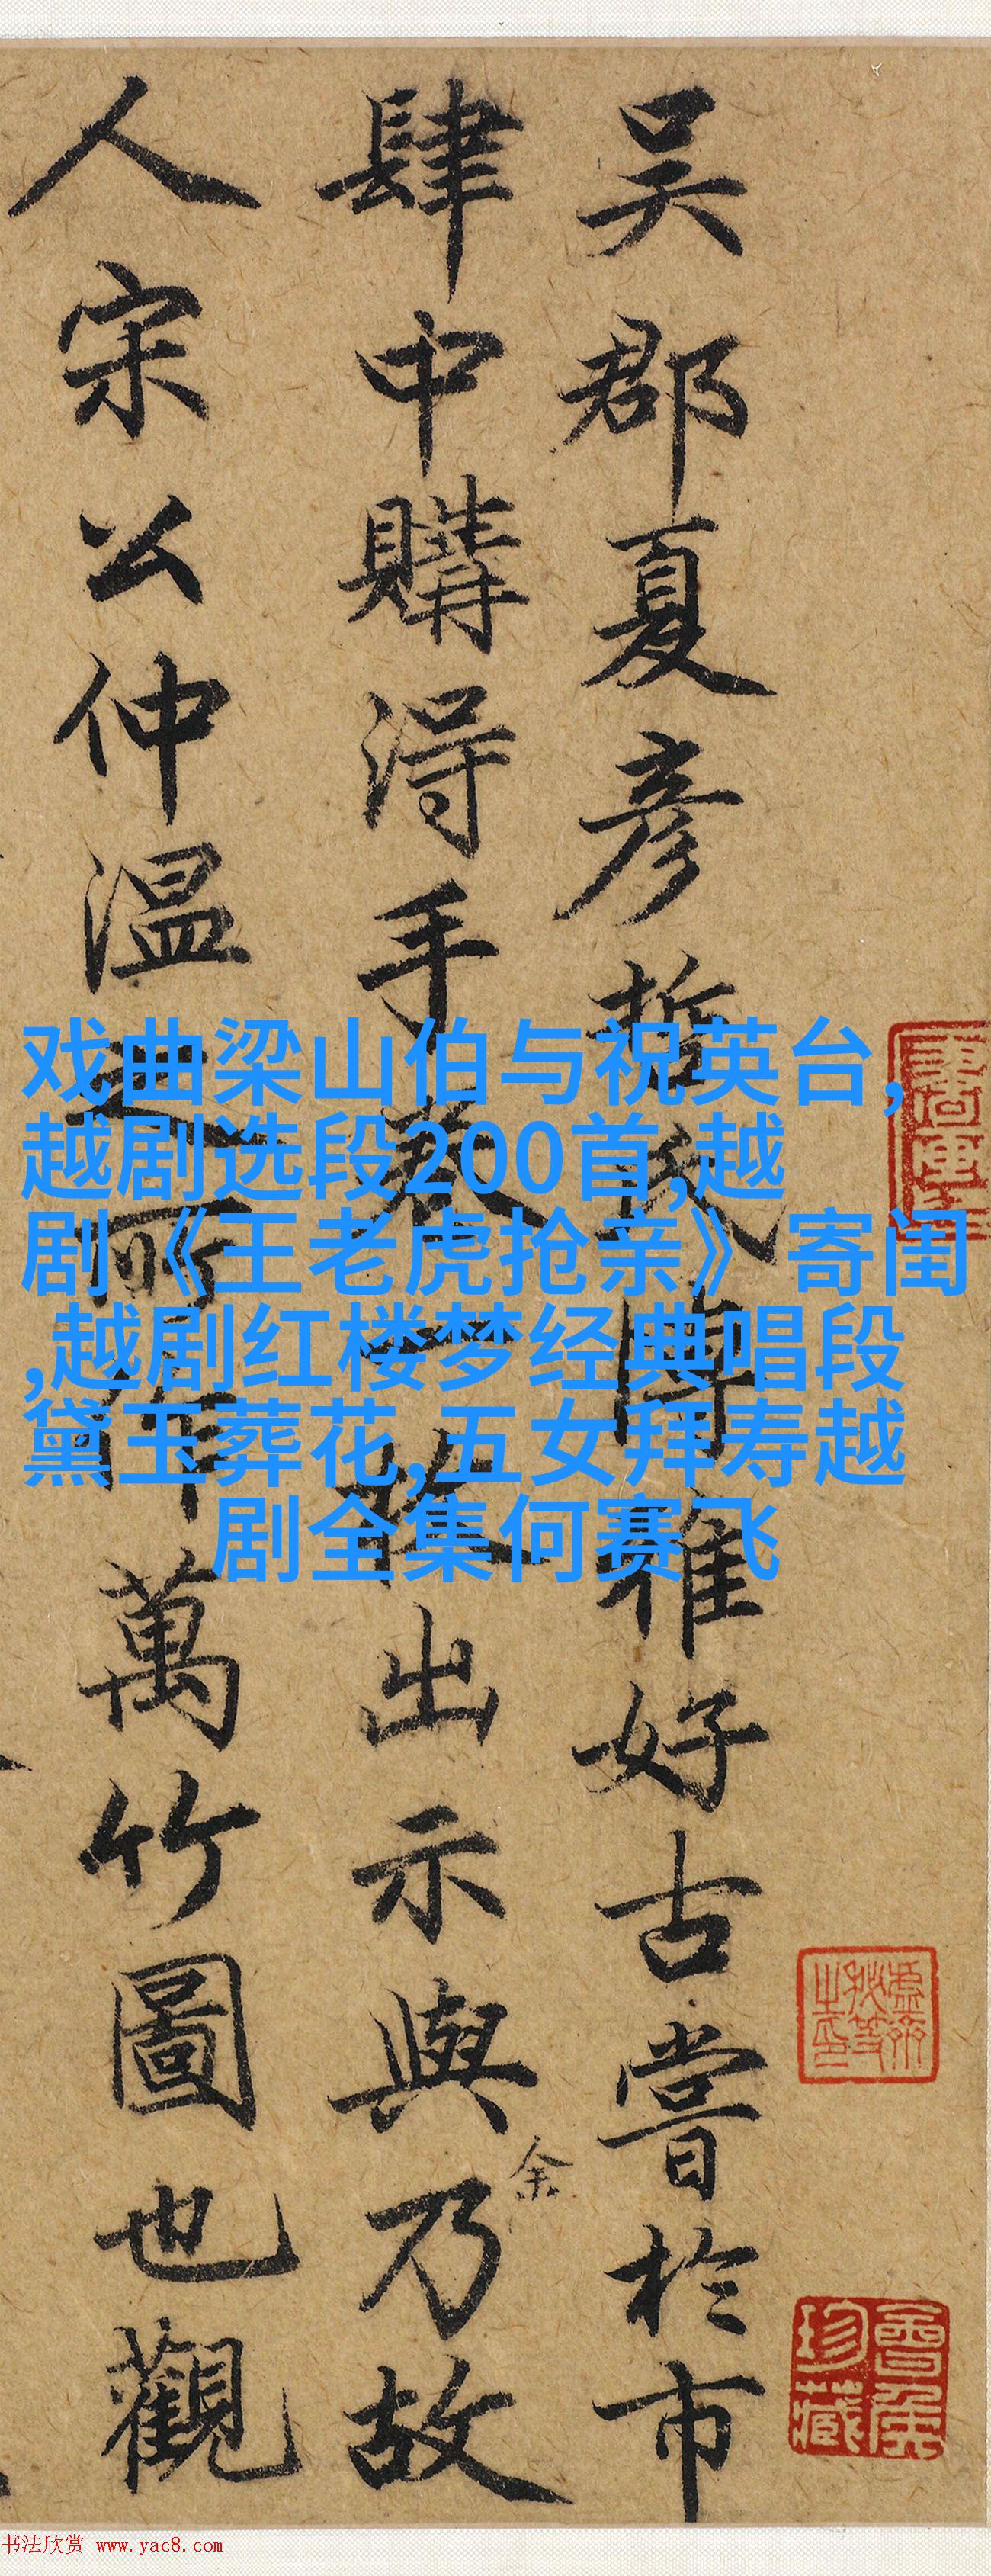 吴郡夏彦哲氏博雅好古嘗於市
肆中購得手卷一出示與余乃故
人宋公仲温之所作萬竹圖也觀
戏曲梁山伯与祝英台,
越剧选段200首,越
剧《王老虎抢亲》寄闺
,越剧红楼梦经典唱段
黛玉葬花,五女拜寿越
剧全集何赛飞
书法欣赏 www.yac8.com